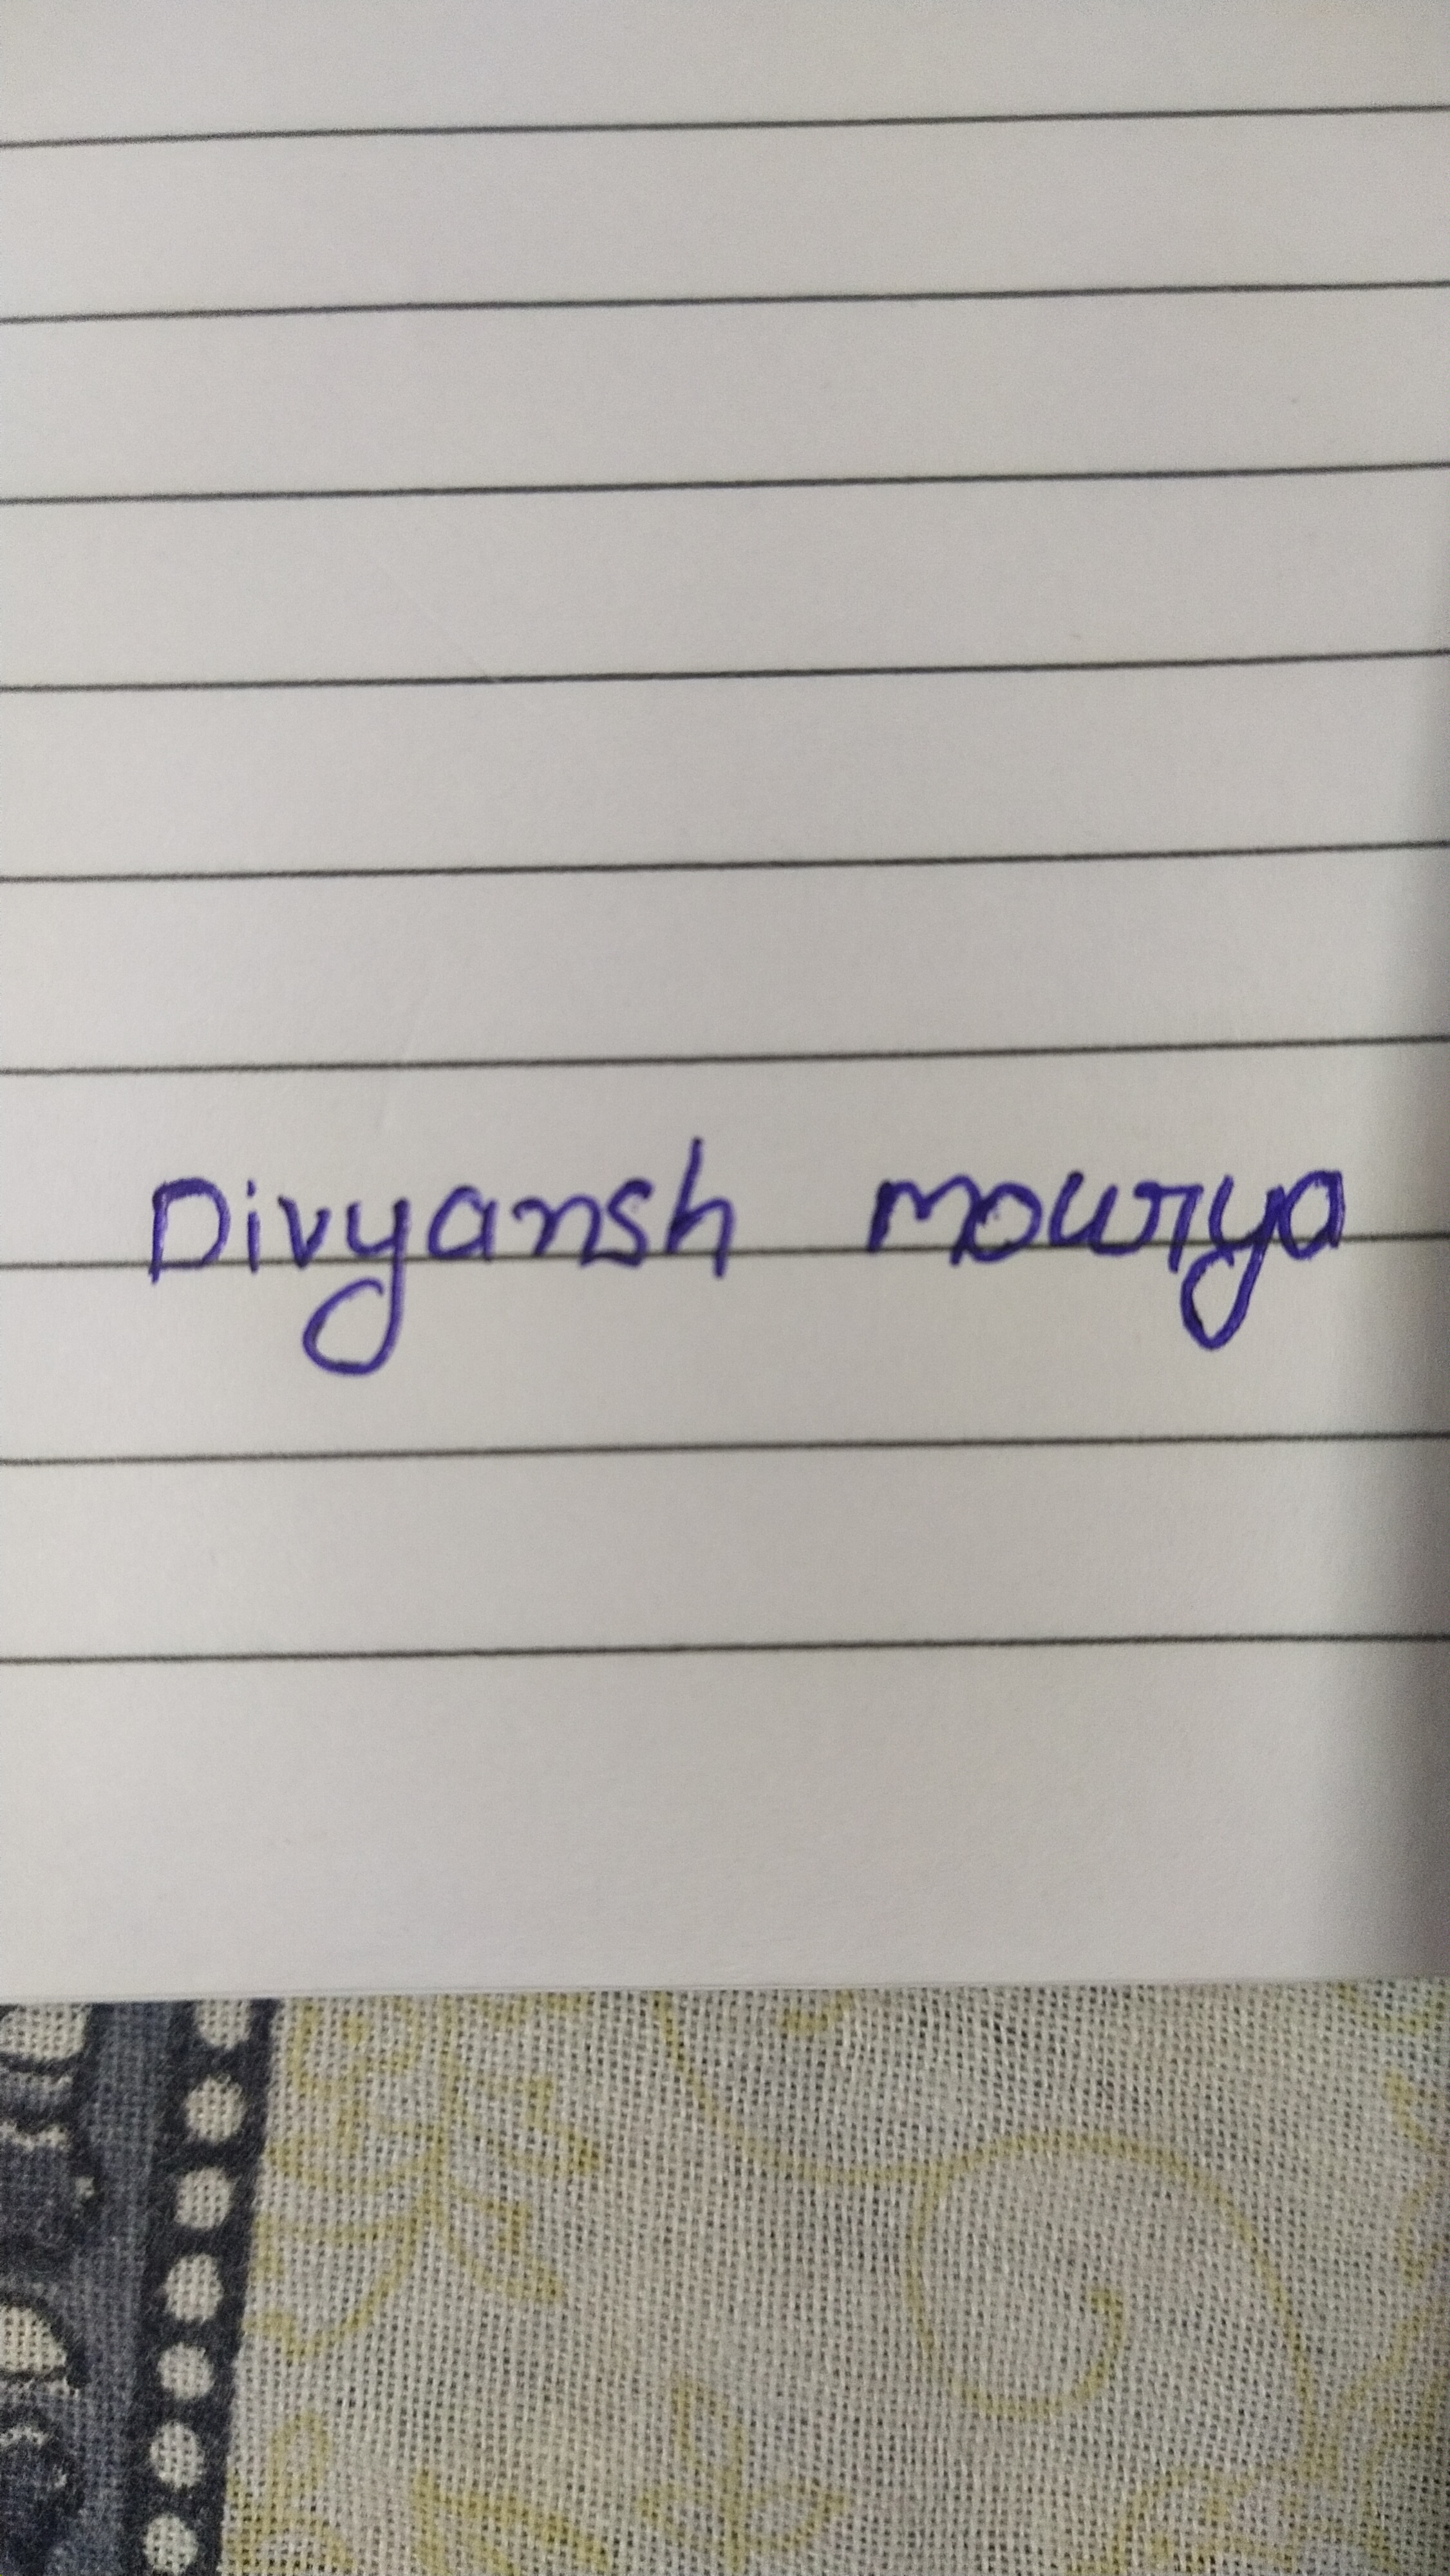 Divyansh mourya